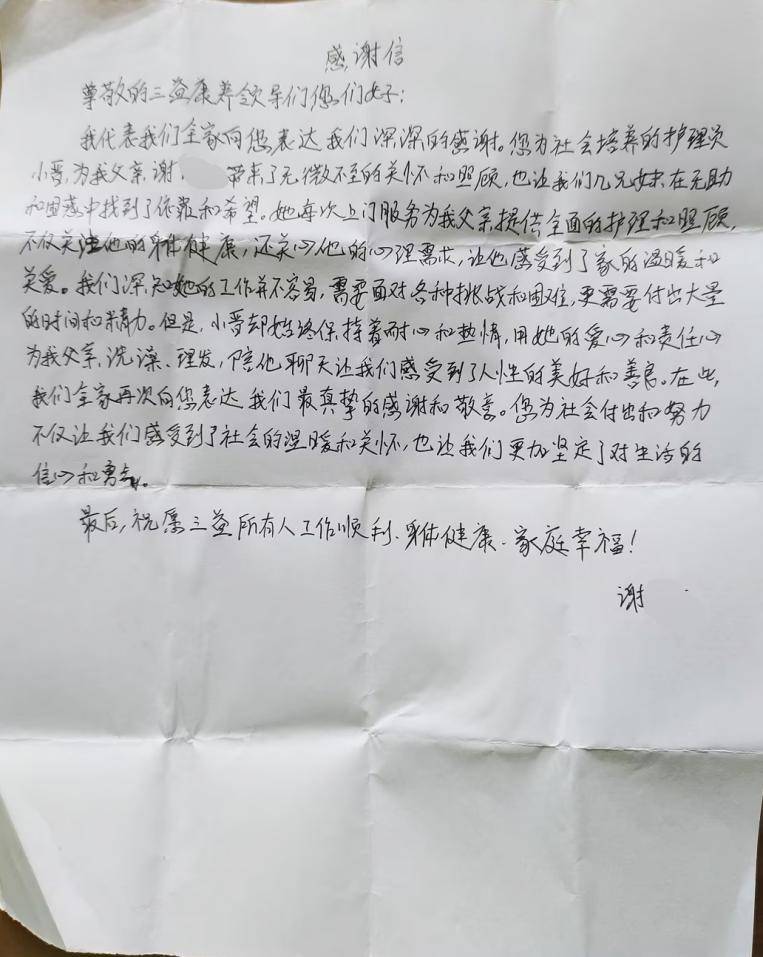 感谢信
尊敬的三益康养领导们您们好:
我代表我们全家向您表达我们深深的感谢。您为社会培养的护理员
小晋,为我父亲谢 带来了无微不至的关怀和照顾,也让我们几兄妹在无助
和困惑中找到了依靠和希望。她每次上门服务为我父亲提供全面的护理和照顾,
不仅关注他的身体健康,还关心他的心理需求,让他感受到了家的温暖和
关爱。我们深知她的工作并不容易,需要面对各种挑战和困难,更需要付出大量
的时间和精力。但是,小晋却始终保持着耐心和热情,用她的爱心和责任心
为我父亲洗澡、理发,陪他聊天让我们感受到了人性的美好和善良。在此,
我们全家再次向您表达我们最真挚的感谢和敬意。您为社会付出和努力
不仅让我们感受到了社会的温暖和关怀,也让我们更加坚定了对生活的
信心和勇气。
最后,祝愿三益所有人工作顺利、身体健康、家庭幸福!
谢